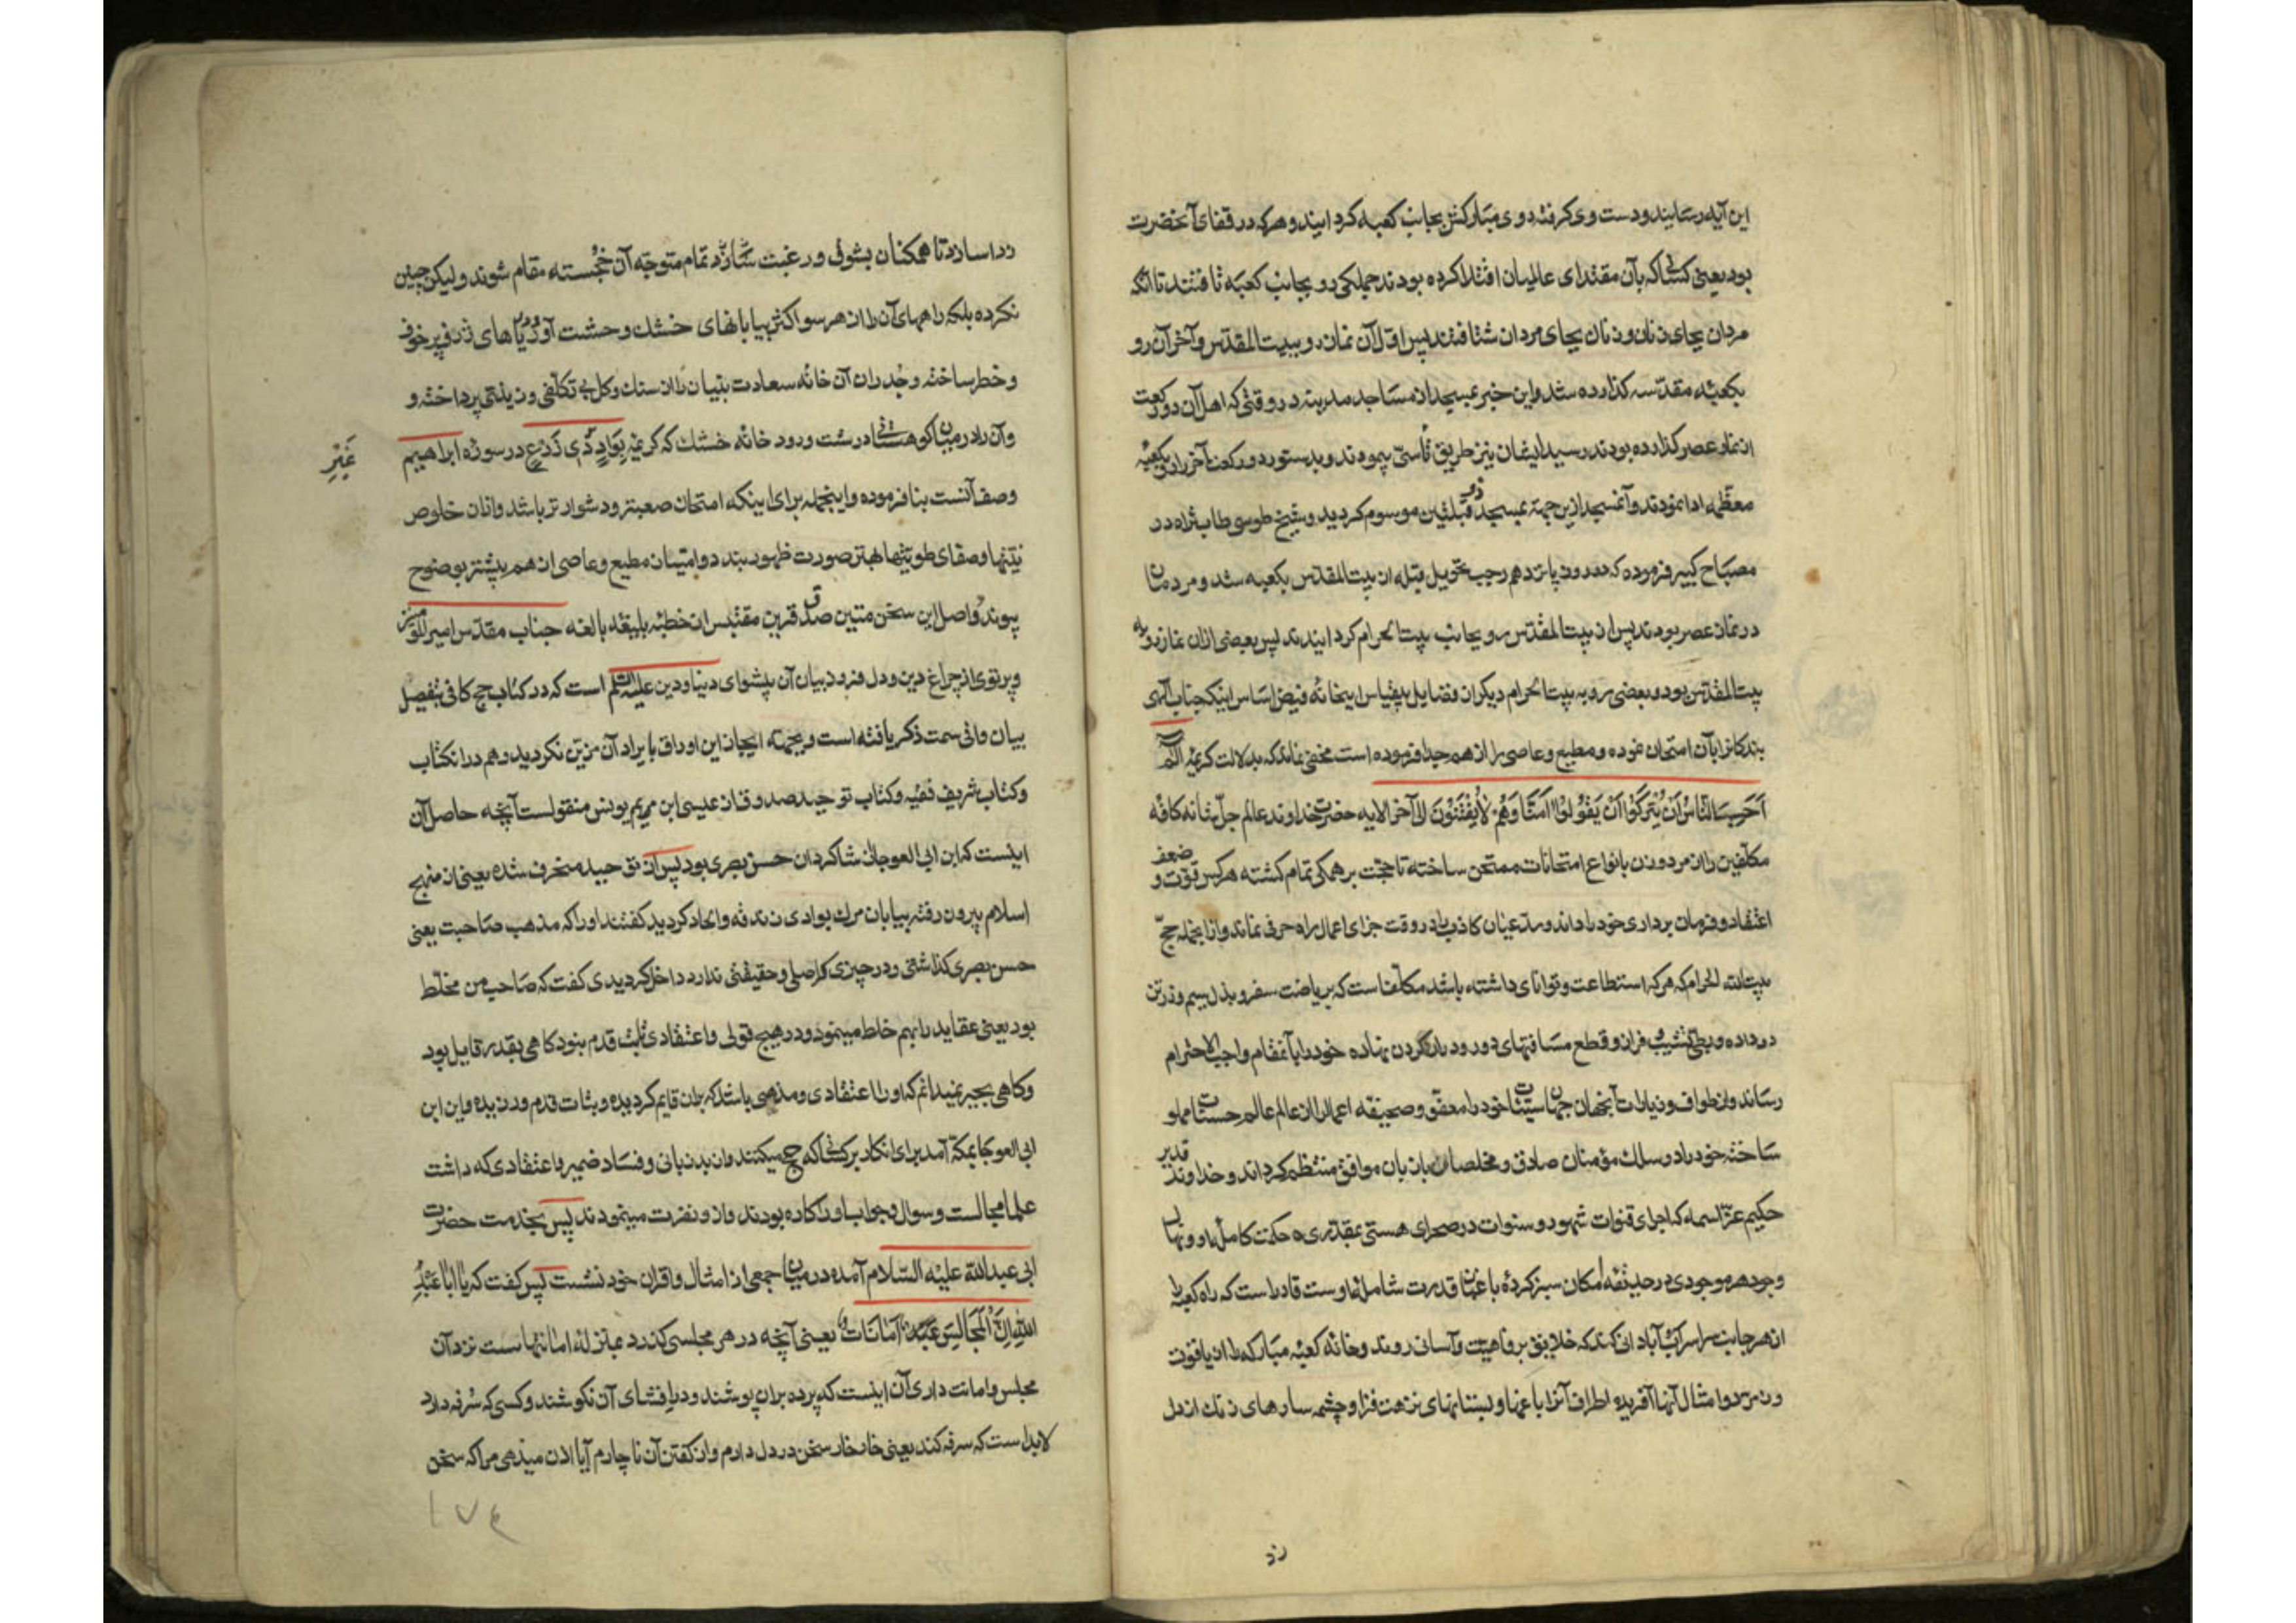 این آیه رسانیند و دست وی گرفته روی مبارکش بجانب کعبه گردانیند و هرکه در قفای آنحضرت
بود یعنی کسانی که بآن مقتدای عالمیان اقتدا کرده بودند جملکی رو بجانب کعبه تافتند تا آنکه
مردان بجای زنان و زنان بجای مردان شتافتند پس اول آن نماز رو ببیت المقدس و آخر آن رو
بکعبه مقدسه کذارده شد و این خبر بمسجد از مساجد مدینه در وقتی که اهل آن دو رکعت
از نماز عصر کذارده بودند رسید ایشان نیز طریق تأسی پیمودند و بدستور دو رکعت آخر را بکعبه
معظمه ادا نمودند و آنمسجد ازین جهة بمسجد ذو قبلتین موسوم کردید و شیخ طوسی طاب ثراه در
مصباح کبیر فرموده که در روز پانزدهم رجب تحویل قبله از بیت المقدس بکعبه شد و مردمان
در نماز عصر بودند پس از بیت المقدس رو بجانب بیت الحرام کردانیدند پس بعضی ازان نماز رو به
بیت المقدس بود و بعضی رو به بیت الحرام دیکر از فضایل بیقیاس اینخانه فیض اساس اینکه جناب الهی
بندکانرا بآن امتحان نموده و مطیع و عاصی را از هم جدا فرموده است مخفی نماند که بدلالت کریمه الم
أحسب الناس أن یترکوا أن یقولوا آمنا وهم لا یفتنون الی آخر الایه حضرت خداوند عالم جل شانه کافه
مکلفین را از مرد و زن بانواع امتحانات ممتحن ساخته تا حجت بر همکی تمام کشته هرکس قوت و ضعف
اعتقاد و فرمان برداری خود را داند و مدعیان کاذب را در وقت جزای اعمال راه حرفی نماند و ازانجمله حج
بیت الله الحرام که هرکه استطاعت و توانای داشته باشد مکلف است که بریاضت سفر و بذل سیم و زر تن
در داده و بطی نشیب و فراز و قطع مسافتهای دور و دراز کردن نهاده خود را بآنمقام واجب الاحترام
رساند و از طواف و زیارات آنجهان جهان سیئات خود را معفو و صحیفه اعمال را از عالم عالم حسنات مملو
ساخته خود را در سلک مؤمنان صادق و مخلصان بازبان موافق منتظم کرداند و خداوند قدیر
حکیم عز اسمه که اجرای قنوات شهود و سنوات در صحرای هستی بمقتدری حکمت کامله او و نهال
وجود هر موجودی در حدیقه امکان سبز کرده باغبان قدرت شامله اوست قادر است که راه کعبه را
از هر جانب سراسر آبادانی کند که خلایق برفاهیت و آسانی روند و خانه کعبه مبارکه را از یاقوت
و زمرد و امثال آنها آفریده اطراف آنرا باغها و بستانهای نزهت فزا و چشمه سارهای زنک از دل
زد
ردا سازد تا همکنان بشوق و رغبت تمام متوجه آن خجسته مقام شوند و لیکن چنین
نکرده بلکه راههای آن را از هر سو اکثر بیابانهای خشک و حشت آور و دریاهای ژرف پر خوف
و خطر ساخته و جدران آن خانه سعادت بنیان را از سنک و کل بی تکلفی و زینتی پرداخته و
وآن را در میان کوهستانی درشت و رود خانه خشک که کریمه بواد ذی زرع در سوره ابراهیم
غیر
وصف آنست بنا فرموده و اینجمله برای اینکه امتحان صعبتر و دشوار تر باشد و ازان خلوص
نیتها و صفای طویتها بهتر صورت ظهور بندد و امتیاز مطیع و عاصی از هم بیشتر بوضوح
پیوندد و اصل این سخن متین صدق قرین مقتبس از خطبه بلیغه بالغه جناب مقدس امیر المؤمنین
و پرتوی از چراغ دین و دل فروز بیان آن پیشوای دنیا و دین علیه السلم است که در کتاب حج کافی بتفصیل
بیان وافی سمت ذکر یافته است و بجهته ایجاز این اوراق بایراد آن مزین نکردید و هم در انکتاب
و کتاب شریف فقیه و کتاب توحید صدوق از عیسی ابن مریم یونس منقولست آنچه حاصل آن
اینست که ابن ابی العوجا از شاکردان حسن بصری بود پس از توحید منحرف شده یعنی از منهج
اسلام بیرون رفته بیابان مرک بوادی زندقه و الحاد کردید کفتند اورا که مذهب صاحبت یعنی
حسن بصری کذاشتی و در چیزی که اصلی و حقیقتی ندارد داخل کردیدی کفت که صاحب من مخلط
بود یعنی عقاید را بهم خلط مینمود و در هیچ قولی و اعتقادی ثابت قدم نبود کاهی بقدر قایل بود
و کاهی بجبر نمیدانم که او را اعتقادی و مذهبی باشد که بران قایم کردیده و ثبات قدم ورزیده و این ابن
ابی العوجا بمکه آمد برای انکار بر کسانی که حج میکنند و از بدزبانی و فساد ضمیر و اعتقادی که داشت
علما مجالست و سوال و جواب او را کاره بودند و ازو نفرت مینمودند پس بخدمت حضرت
ابی عبدالله علیه السلام آمده در میان جمعی از امثال و اقران خود نشست پس کفت که یا ابا عبد
الله ان المجالس امانات یعنی آنچه در هر مجلسی کذرد بمنزله امانتهاست نزد آن
مجلس و امانت داری آن اینست که پرده بران پوشند و در افشای آن نکوشند و کسی که سُرفه دارد
لابد است که سرفه کند یعنی خار خار سخن در دل دارم و از کفتن آن ناچارم آیا اذن میدهی مرا که سخن
۱۷۴